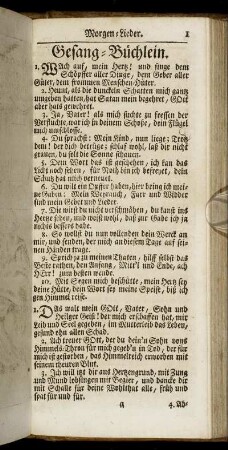 Morgen-Lieder. 1
Gesang-Büchlein.
1. WAch auf, mein Hertz! und singe dem
Schöpffer aller Dinge, dem Geber aller
Güter, dem frommen Menschen-Hüter.
2. Heunt, als die dunckeln Schatten mich gantz
umgeben hatten, hat Satan mein begehret, GOtt
aber hats gewehret.
3. Ja, Vater! als mich suchte zu fressen der
Verfluchte, war ich in deinem Schoße, dein Flügel
mich umschlosse.
4. Du sprachst: Mein Kind, nun liege: Trotz
dem! der dich betriege: schlaf wohl, laß dir nicht
grauen, du solt die Sonne schauen.
5. Dein Wort das ist geschehen, ich kan das
Licht noch sehen, für Noth bin ich befreyet, dein
Schutz hat mich verneuet.
6. Du wilt ein Opffer haben, hier bring ich meine
Gaben: Mein Weyrauch, Farr und Widder
sind mein Gebet und Lieder.
7. Die wirst du nicht verschmähen, du kanst ins
Hertze sehen, und weist wohl, daß zur Gabe ich ja
nichts bessers habe.
8. So wollst du nun vollenden dein Werck an
mir, und senden, der mich an diesem Tage auf seinen
Händen trage.
9. Sprich ja zu meinen Thaten, hilff selbst das
Beste rathen, den Anfang, Mitt'l und Ende, ach
HErr! zum besten wende.
10. Mit Segen mich beschütte, mein Hertz sey
deine Hütte, dein Wort sey meine Speise, biß ich
gen Himmel reise.
1. DAs walt mein GOtt, Vater, Sohn und
Heilger Geist! der mich erschaffen hat, mir
Leib und Seel gegeben, im Mutterleib das Leben,
gesund ohn allen Schad.
2. Ach treuer GOtt, der du dein'n Sohn vons
Himmels-Thron für mich gegeb'n in Tod, der für
mich ist gestorben, das Himmelreich erworben mit
seinem theuren Blut.
3. Ich will dir aus Hertzengrund, mit Zung
und Mund lobsingen mit Begier, und dancke dir
mit Schalle für deine Wohlthat alle, früh und
spat für und für.
a 4. Ab-